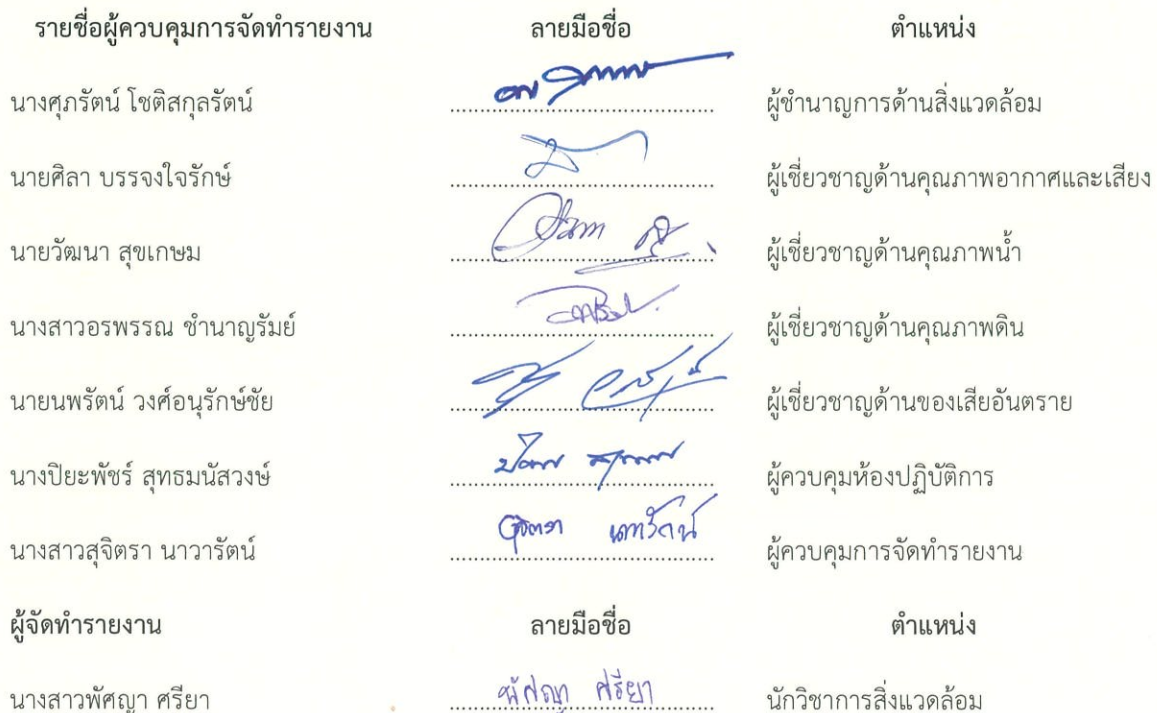 รายชื่อผู้ควบคุมการจัดทำรายงาน ลายมือชื่อ ตำแหน่ง
นางศุภรัตน์ โชติสกุลรัตน์ ผู้ชำนาญการด้านสิ่งแวดล้อม
นายศิลา บรรจงใจรักษ์ ผู้เชี่ยวชาญด้านคุณภาพอากาศและเสียง
นายวัฒนา สุขเกษม ผู้เชี่ยวชาญด้านคุณภาพน้ำ
นางสาวอรพรรณ ชำนาญรัมย์ ผู้เชี่ยวชาญด้านคุณภาพดิน
นายนพรัตน์ วงศ์อนุรักษ์ชัย ผู้เชี่ยวชาญด้านของเสียอันตราย
นางปิยะพัชร์ สุทธมนัสวงษ์ ผู้ควบคุมห้องปฏิบัติการ
นางสาวสุจิตรา นาวารัตน์ สุจิตรา นาวารัตน์ ผู้ควบคุมการจัดทำรายงาน
ผู้จัดทำรายงาน ลายมือชื่อ ตำแหน่ง
นางสาวพัศญา ศรียา พัศญา ศรียา นักวิชาการสิ่งแวดล้อม